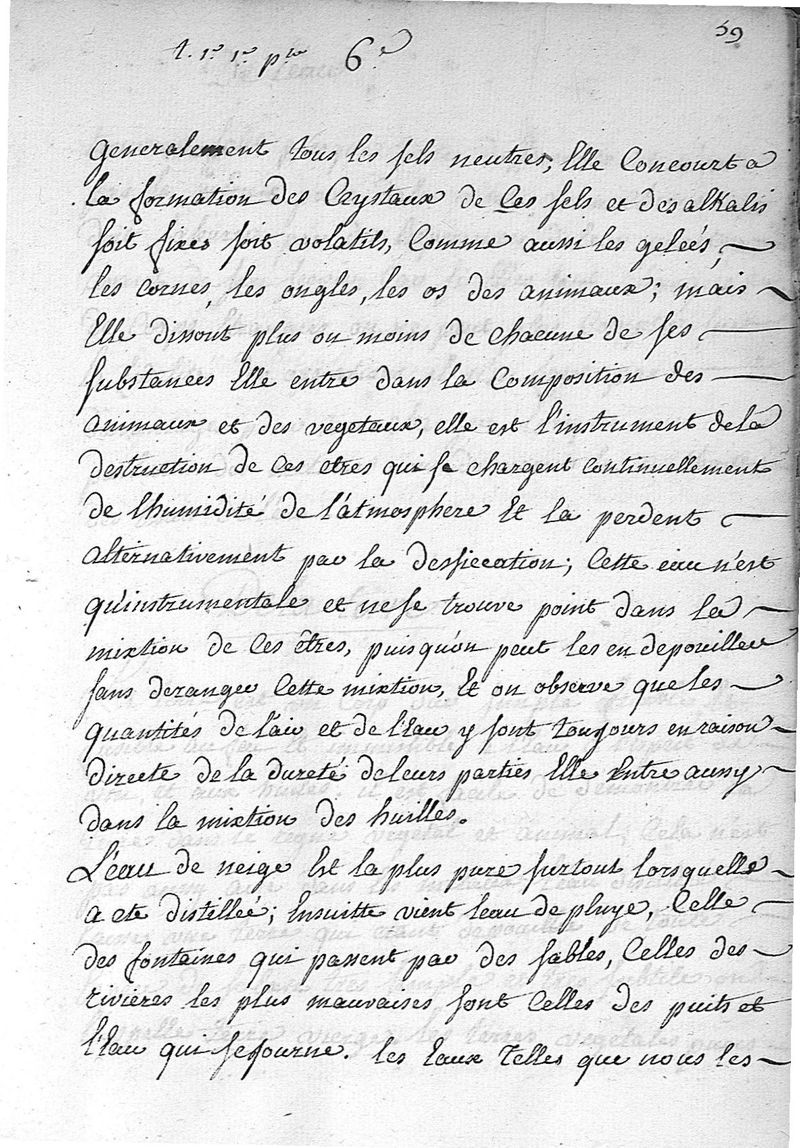 59
t. 1er 1er ptie 6e
generalement tous les sels neutres, Elle Concourt a
la formation des Crystaux de Ces sels et des alkalis
soit fixes soit volatils, Comme aussi les geleés,
les cornes, les ongles, les os des animaux; mais
Elle dissout plus ou moins de chacune de ses
substances Elle entre dans la Composition des
animaux et des vegetaux, elle est l'instrument de la
destruction de Ces etres qui se chargent continuellement
de l'humidité de l'atmosphere Et la perdent
alternativement par la dessiccation; Cette eau n'est
qu'instrumentale et ne se trouve point dans la
mixtion de Ces êtres, puisqu'on peut les en depouiller
sans deranger Cette mixtion, Et on observe que les
quantités de l'air et de l'Eau y sont toujours en raison
directe de la dureté de leurs parties Elle Entre aussy
dans la mixtion des huilles.
L'eau de neige Est la plus pure surtout lorsquelle
a ete distilleé; Ensuitte vient leau de pluye, Celle
des fontaines qui passent par des sables, Celles des
rivières les plus mauvaises sont Celles des puits et
l'Eau qui sejourne. les Eaux Telles que nous les